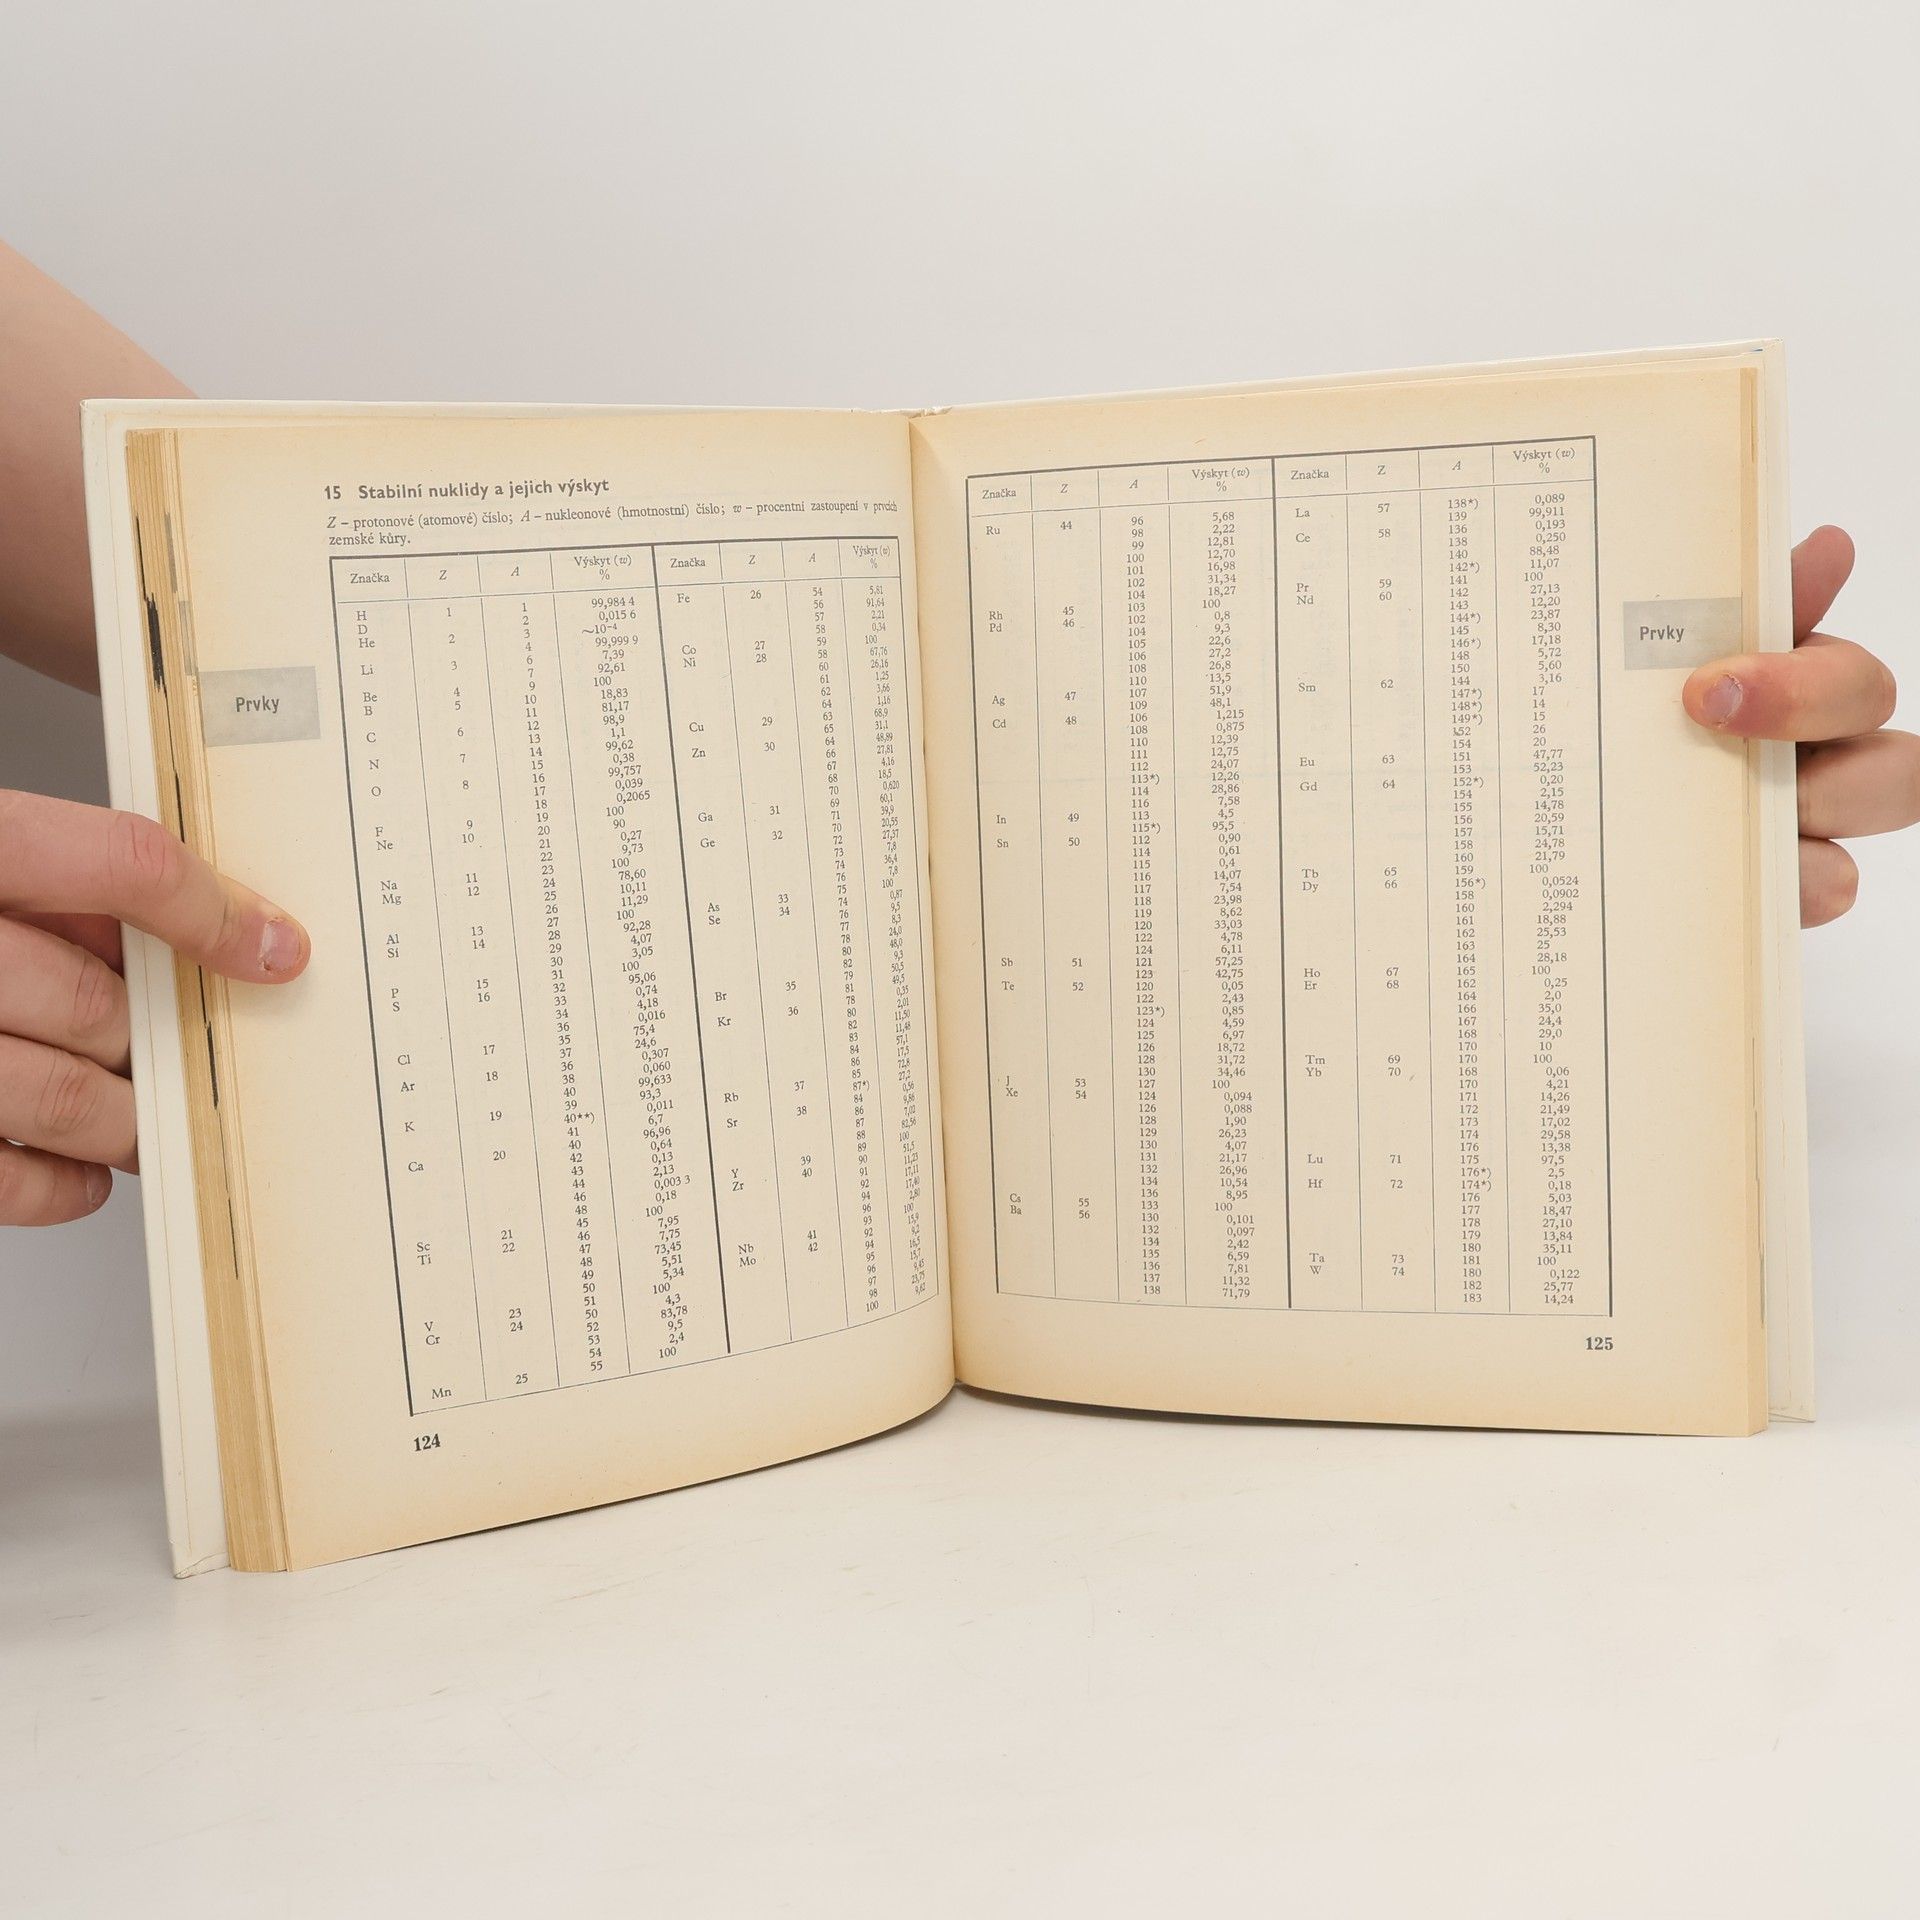 15 Stabilní nuklidy a jejich výskyt
Z – protonové (atomové) číslo; A – nukleonové (hmotnostní) číslo; w – procentní zastoupení v prvcích
zemské kůry.
Prvky
Značka Z A Výskyt (w) %
H 1 1 99,984 4
D 2 0,015 6
He 2 3 ~10⁻⁴
4 99,999 9
Li 3 6 7,39
7 92,61
Be 4 9 100
B 5 10 18,83
11 81,17
C 6 12 98,9
13 1,1
N 7 14 99,62
15 0,38
O 8 16 99,757
17 0,039
18 0,2065
F 9 19 100
Ne 10 20 90
21 0,27
22 9,73
Na 11 23 100
Mg 12 24 78,60
25 10,11
26 11,29
Al 13 27 100
Si 14 28 92,28
29 4,07
30 3,05
P 15 31 100
S 16 32 95,06
33 0,74
34 4,18
36 0,016
Cl 17 35 75,4
37 24,6
Ar 18 36 0,307
38 0,060
40 99,633
K 19 39 93,3
40**) 0,011
41 6,7
Ca 20 40 96,96
42 0,64
43 0,13
44 2,13
46 0,003 3
48 0,18
Sc 21 45 100
Ti 22 46 7,95
47 7,75
48 73,45
49 5,51
50 5,34
V 23 51 100
Cr 24 50 4,3
52 83,78
53 9,5
54 2,4
Mn 25 55 100
Značka Z A Výskyt (w) %
Fe 26 54 5,81
56 91,64
57 2,21
58 0,34
Co 27 59 100
Ni 28 58 67,76
60 26,16
61 1,25
62 3,66
64 1,16
Cu 29 63 68,9
65 31,1
Zn 30 64 48,89
66 27,81
67 4,16
68 18,5
70 0,620
Ga 31 69 60,1
71 39,9
Ge 32 70 20,55
72 27,37
73 7,8
74 36,4
76 7,8
As 33 75 100
Se 34 74 0,87
76 9,5
77 8,3
78 24,0
80 48,0
82 9,3
Br 35 79 50,5
81 49,5
Kr 36 78 0,35
80 2,01
82 11,50
83 11,48
84 57,1
86 17,5
Rb 37 85 72,8
87*) 27,2
Sr 38 84 0,56
86 9,86
87 7,02
88 82,56
Y 39 89 100
Zr 40 90 51,5
91 11,23
92 17,11
94 17,40
96 2,80
Nb 41 93 100
Mo 42 92 15,9
94 9,2
95 16,5
96 15,7
97 9,45
98 23,75
100 9,62
124
Značka Z A Výskyt (w) %
Ru 44 96 5,68
98 2,22
99 12,81
100 12,70
101 16,98
102 31,34
104 18,27
Rh 45 103 100
Pd 46 102 0,8
104 9,3
105 22,6
106 27,2
108 26,8
110 13,5
Ag 47 107 51,9
109 48,1
Cd 48 106 1,215
108 0,875
110 12,39
111 12,75
112 24,07
113*) 12,26
114 28,86
116 7,58
In 49 113 4,5
115*) 95,5
Sn 50 112 0,90
114 0,61
115 0,4
116 14,07
117 7,54
118 23,98
119 8,62
120 33,03
122 4,78
124 6,11
Sb 51 121 57,25
123 42,75
Te 52 120 0,05
122 2,43
123*) 0,85
124 4,59
125 6,97
126 18,72
128 31,72
130 34,46
J 53 127 100
Xe 54 124 0,094
126 0,088
128 1,90
129 26,23
130 4,07
131 21,17
132 26,96
134 10,54
136 8,95
Cs 55 133 100
Ba 56 130 0,101
132 0,097
134 2,42
135 6,59
136 7,81
137 11,32
138 71,79
Značka Z A Výskyt (w) %
La 57 138*) 0,089
139 99,911
Ce 58 136 0,193
138 0,250
140 88,48
142*) 11,07
Pr 59 141 100
Nd 60 142 27,13
143 12,20
144*) 23,87
145 8,30
146*) 17,18
148 5,72
150 5,60
Sm 62 144 3,16
147*) 17
148*) 14
149*) 15
152 26
154 20
Eu 63 151 47,77
153 52,23
Gd 64 152*) 0,20
154 2,15
155 14,78
156 20,59
157 15,71
158 24,78
160 21,79
Tb 65 159 100
Dy 66 156*) 0,0524
158 0,0902
160 2,294
161 18,88
162 25,53
163 25
164 28,18
Ho 67 165 100
Er 68 162 0,25
164 2,0
166 35,0
167 24,4
168 29,0
170 10
Tm 69 170 100
Yb 70 168 0,06
170 4,21
171 14,26
172 21,49
173 17,02
174 29,58
176 13,38
Lu 71 175 97,5
176*) 2,5
Hf 72 174*) 0,18
176 5,03
177 18,47
178 27,10
179 13,84
180 35,11
Ta 73 181 100
W 74 180 0,122
182 25,77
183 14,24
Prvky
125